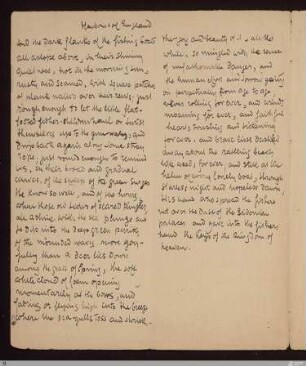 Harbours of England
And the dark flanks of the fishing boats
all aslope above, in their shining
quietness, hot in the morning sun,
rusty and seamed, with square patches
of plank nailed over their rents; just
rough enough to let the little flat-
footed fisher-children haul or twist
themselves up to the gunwales, and
drop back again along some stray
rope; just round enough to remind
us, in their broad and gradual
curves, of the sweep of the green surges
they know so well, and of the hours
when those old sides of seared timber,
all ashine with the sea, plunge and
dip into the deep green purity
of the mounded waves more joy-
fully than a deer lies down
among the grass of spring, the soft
white cloud of foam opening
momentarily at the bows, and
fading or flying high into the breeze
where the sea-gulls toss and shriek,
the joy and beauty of it, all the
while, so mingled with the sense
of unfathomable danger, and
the human effort and sorrow going
on perpetually from age to age,
waves rolling for ever, and winds
moaning for ever, and faithful
hearts trusting and sickening
for ever, and brave lives dashed
away about the rattling beach
like weeds, for ever; and still at the
helm of every lonely boat, through
starless night and hopeless dawn,
His hand, who spread the fisher's
net over the dust of the Sidonian
palaces, and gave into the fisher's
hand the keys of the kingdom of
heaven.